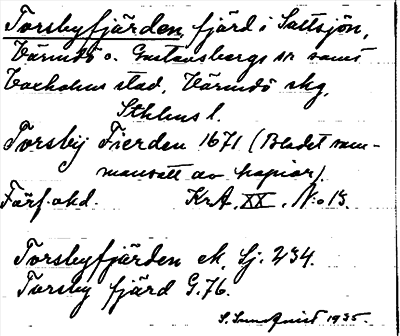 Torsbyfjärden, fjärd i Saltsjön,
Värmdö o. Gustavsbergs sn samt
Vaxholms stad, Värmdö skg,
Sthlms l.
Torsby Fierden 1671 (Bladet sam-
mansatt av kopior).
Färf. okd. KrA, XX, N:o 13.
Torsbyfjärden ek. Sj. 234.
Torsby fjärd G. 76.
S. Sundqvist 1935.